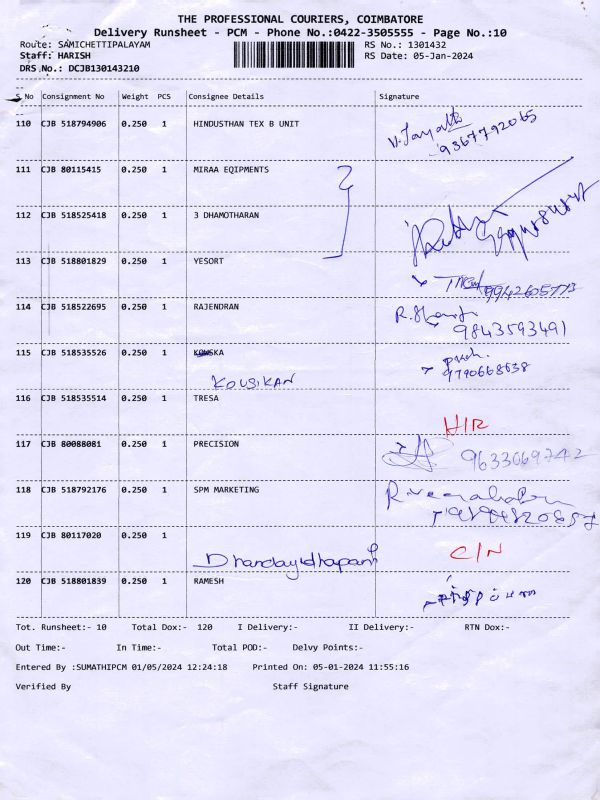 THE PROFESSIONAL COURIERS, COIMBATORE
Delivery Runsheet - PCM - Phone No.:0422-3505555 - Page No.:10
Route: SAMICHETTIPALAYAM RS No.: 1301432
Staff: HARISH RS Date: 05-Jan-2024
DRS No.: DCJB130143210
S No Consignment No Weight PCS Consignee Details Signature
110 CJB 518794906 0.250 1 HINDUSTHAN TEX B UNIT
9367792065
111 CJB 80115415 0.250 1 MIRAA EQIPMENTS
112 CJB 518525418 0.250 1 3 DHAMOTHARAN
113 CJB 518801829 0.250 1 YESORT
9942605773
114 CJB 518522695 0.250 1 RAJENDRAN
9843593491
115 CJB 518535526 0.250 1
KOUSIKAN 9790668638
116 CJB 518535514 0.250 1 TRESA
H/R
117 CJB 80088081 0.250 1 PRECISION
9633069742
118 CJB 518792176 0.250 1 SPM MARKETING
119 CJB 80117020 0.250 1
Dhandayudhapani C/N
120 CJB 518801839 0.250 1 RAMESH
Tot. Runsheet:- 10 Total Dox:- 120 I Delivery:- II Delivery:- RTN Dox:-
Out Time:- In Time:- Total POD:- Delvy Points:-
Entered By :SUMATHIPCM 01/05/2024 12:24:18 Printed On: 05-01-2024 11:55:16
Verified By Staff Signature